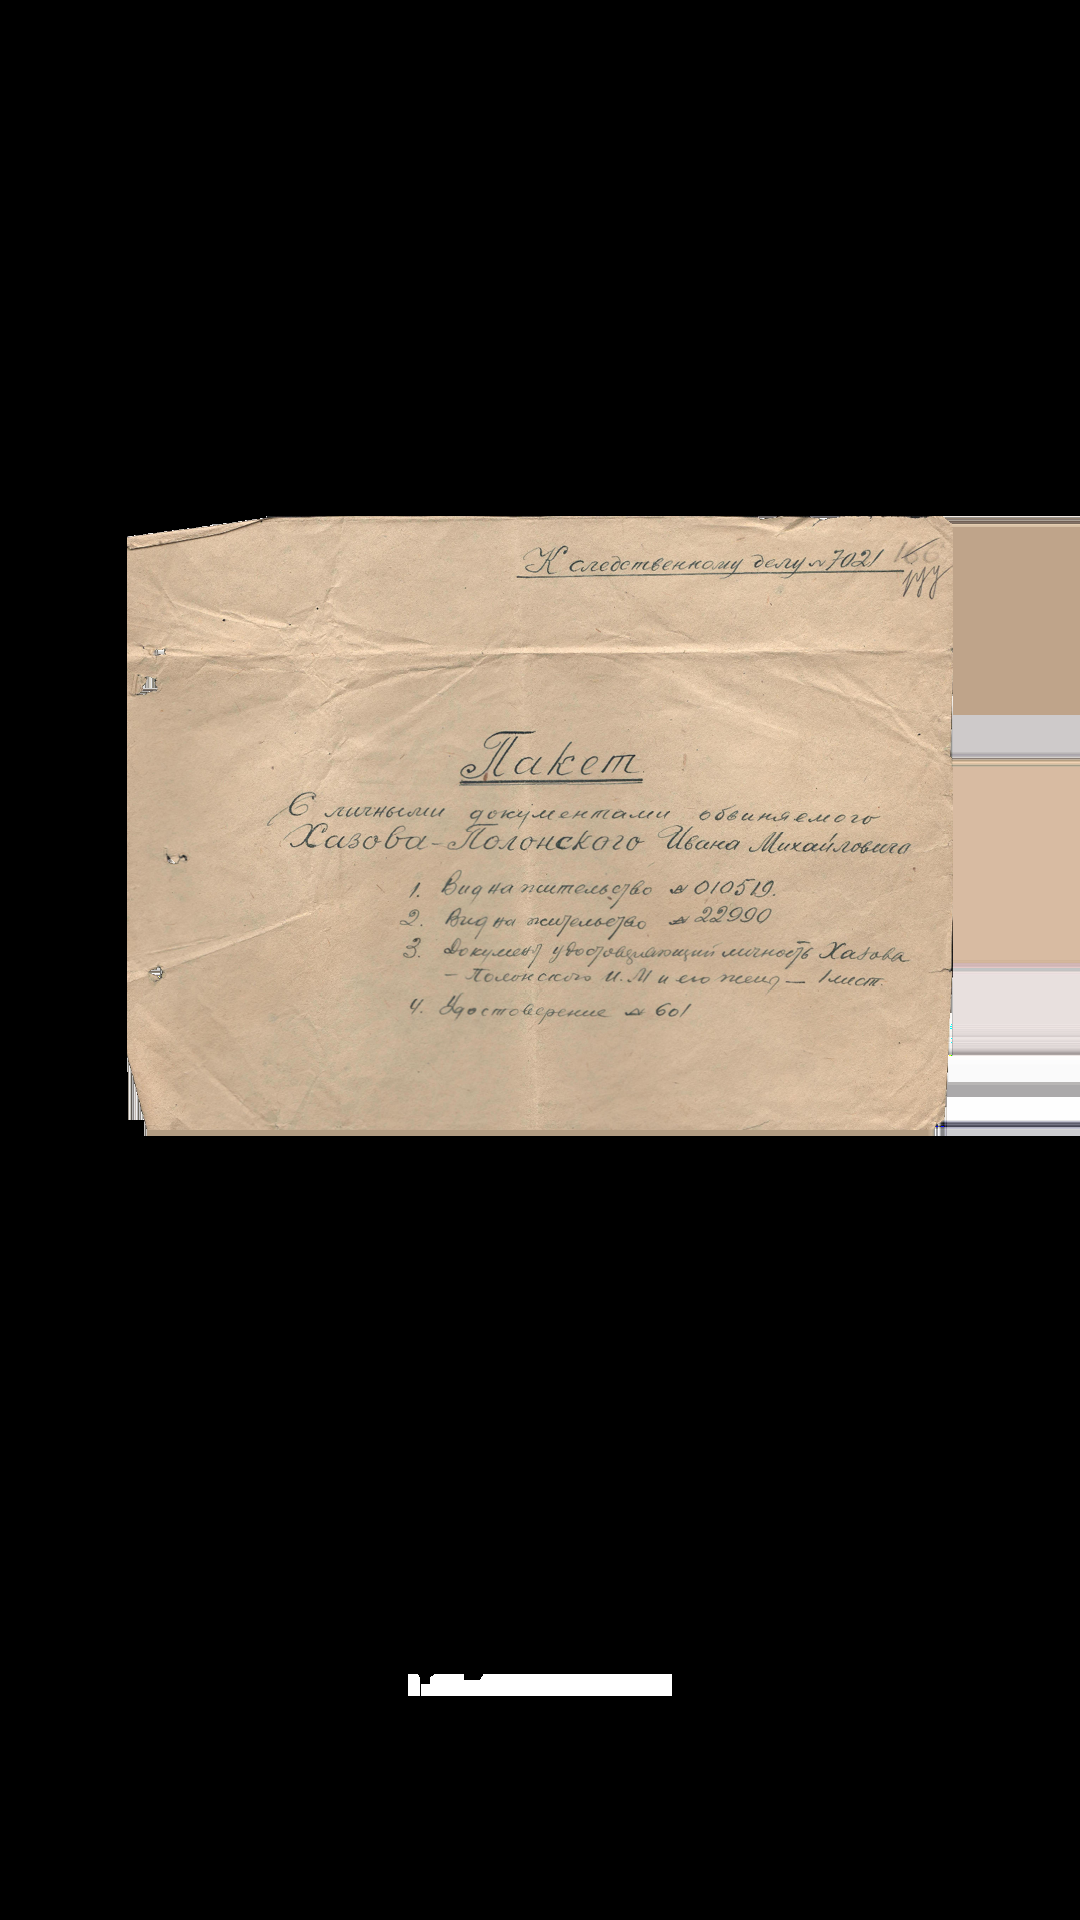 К следственному делу № 7021
Пакет
С личными документами обвиняемого
Хазова-Полонского Ивана Михайловича
1. Вид на жительство № 010519.
2. Вид на жительство № 22990
3. Документ удостоверяющий личность Хазова
– Полонского И.М и его жены — 1 лист.
4. Удостоверение № 601